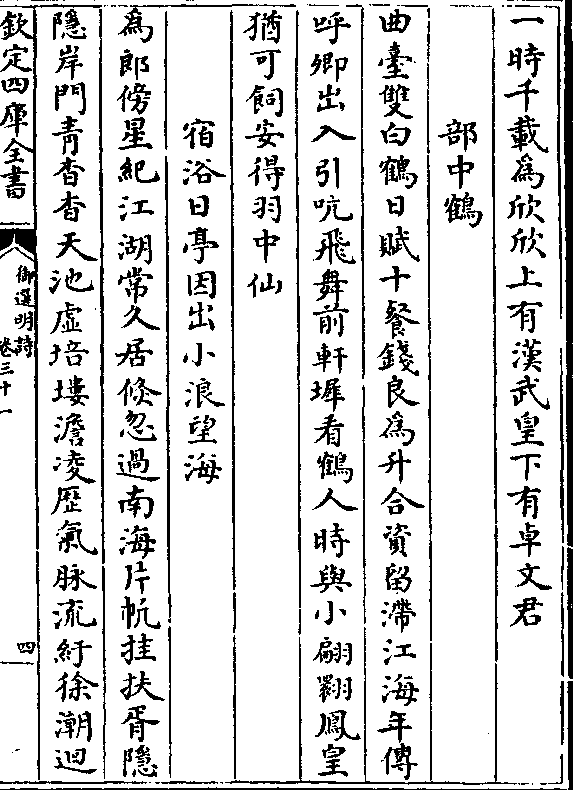 一時千載爲欣欣上有漢武皇下有卓文君
部中鶴
曲臺雙白鶴日賦十餐錢良爲升合資留滯江海年傳
呼卿出入引吭飛舞前軒墀看鶴人時與小翩翾鳳皇
猶可飼安得羽中仙
宿浴日亭因出小浪望海
爲郎傍星紀江湖常久居倐忽過南海片帆挂扶胥隱
隱岸門青杳杳天池虛培塿澹凌歴氣脉流紆徐潮迴
欽定四庫全書
御選明詩
卷三十一
四